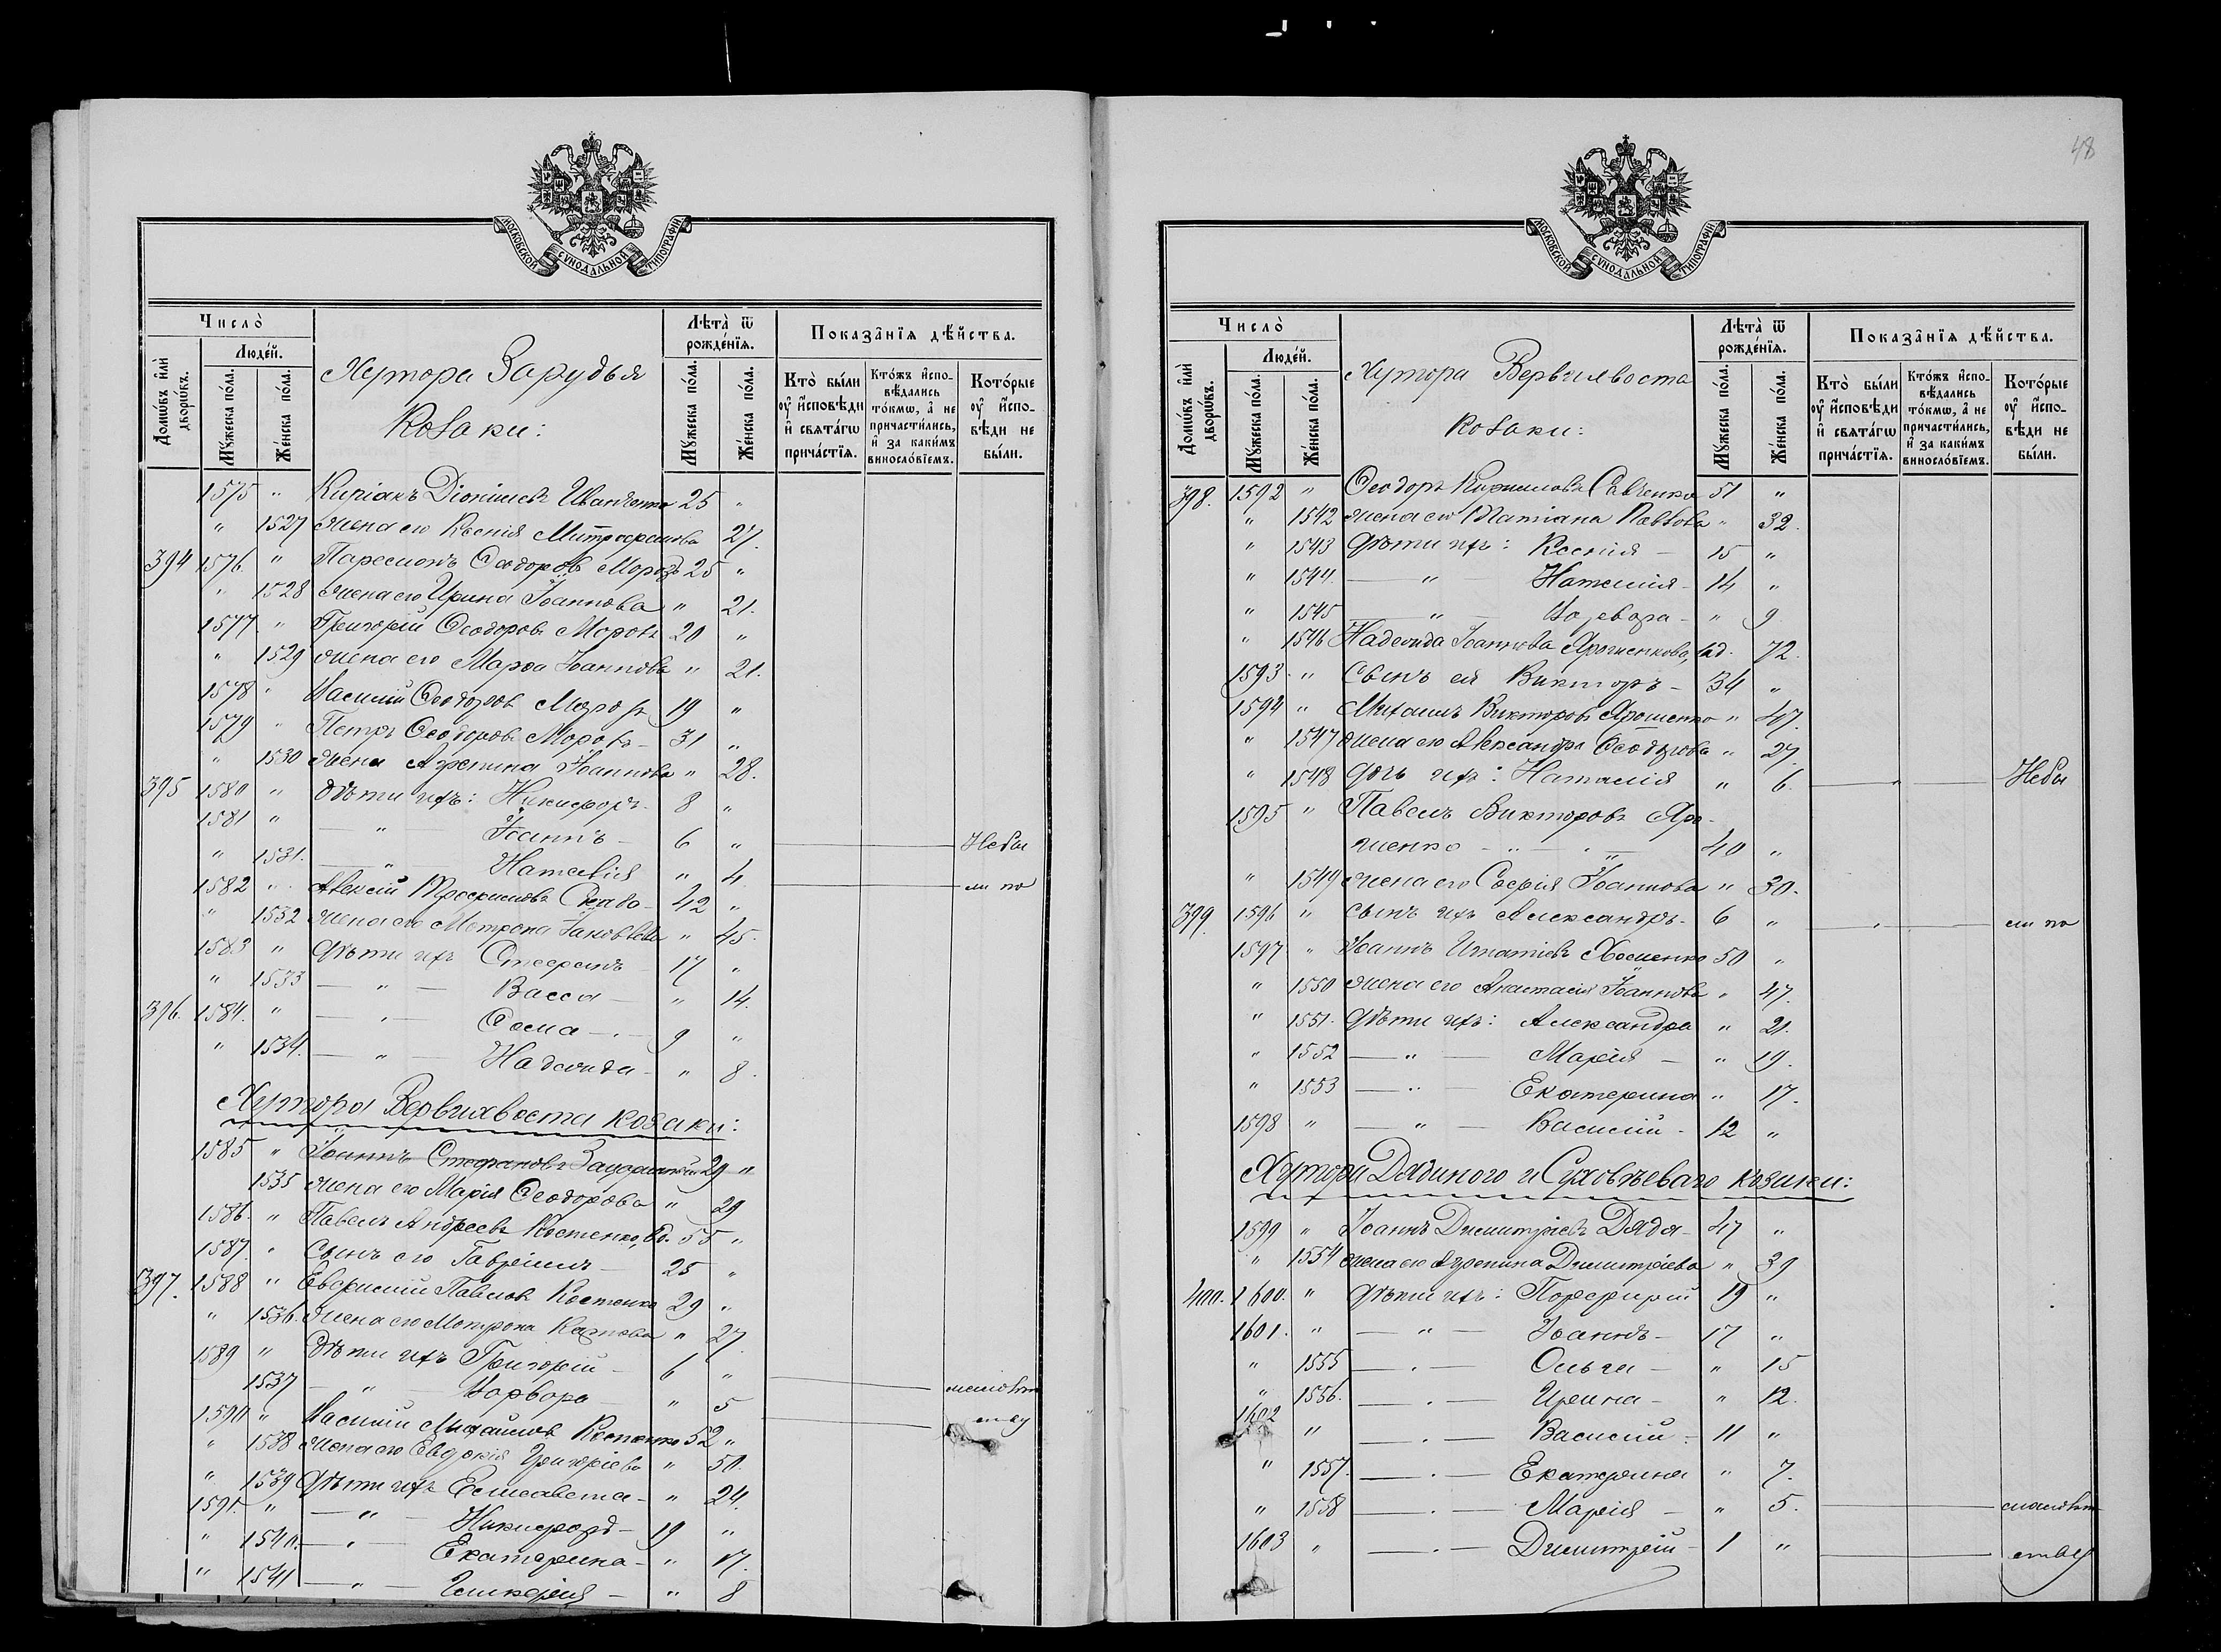 МОСКОВСКОЙ СѴНОДАЛЬНОЙ ТИПОГРАФІИ
Число̀
Люде́й.
Домѡ́въ и҆лѝ дворѡ́въ.
Мꙋ́жеска по́ла.
Же́нска по́ла.
Хутора Зарудья
Козаки:
Лѣта̀ ѿ рожде́нїя.
Мꙋ́жеска по́ла.
Же́нска по́ла.
Показа̂нїя дѣ́йства.
Кто̀ бы́ли оу҆ и҆сповѣди и҆ свѧта́гѡ прича́стїя.
Кто́жъ и҆спо-вѣдались то́кмѡ, а҆ не причасти́лись, и҆ за каки́мъ винословїемъ.
Кото́рые оу҆ и҆спо-вѣди не бы́ли.
1575 " Киріакъ Діонисіевъ Иванченко 25 "
" 1527 жена его Ксенія Митрофанова 27.
394 1576. " Парѳмонъ Ѳеодоровъ Морозъ 25 "
" 1528 жена его Ирина Іоаннова " 21.
1577 " Григорій Ѳеодоровъ Морозъ 20 "
" 1529 жена его Марѳа Іоаннова " 21.
1578 " Василій Ѳеодоровъ Морозъ 19 "
1579 " Петръ Ѳеодоровъ Морозъ - 31 "
" 1530 жена Агрепина Іоаннова " 28.
395 1580 " Дѣти ихъ: Никифоръ - 8 "
1581 " — " — Іоаннъ - 6 " Небы
" 1531. — " — Наталія " 4 ли по
1582 " Алексій Трофимовъ 42 "
" 1532 жена его Мотрона Іаковлева " 45.
1583 " Дѣти ихъ Стефанъ 17 "
" 1533 — " — Васса — " 14.
396. 1584. " — " — Ѳома — 9 "
" 1534. — " — Надежда - " 8.
Хутора Вервихвоста козаки:
1585 " Іоаннъ Стефановъ 29 "
1535 жена его Марія Ѳеодорова " 29
1586. " Павелъ Андреевъ Костенко, вд. 55 "
1587. " Сынъ его Гавріилъ - 25 "
397. 1588 " Евфимій Павловъ Костенко 29 "
" 1536. Жена его Мотрона Карпова " 27
1589 " Дѣти ихъ Григорій - 6 "
1537 — " — Варвара " 5 малолѣт
1590 " Василій Михаиловъ Костенко 52 " ству
" 1538 жена его Евдокія Григоріева " 50.
" 1539 Дѣти ихъ Елисавета - " 24.
1591. " — " — Никифоръ - 19 "
" 1540. — " — Екатерина - " 17.
" 1541 — " — Гликерія - " 8
48
МОСКОВСКОЙ СѴНОДАЛЬНОЙ ТИПОГРАФІИ
Число̀
Люде́й.
Домѡ́въ и҆лѝ дворѡ́въ.
Мꙋ́жеска по́ла.
Же́нска по́ла.
Хутора Вервихвоста
Козаки:
Лѣта̀ ѿ рожде́нїя.
Мꙋ́жеска по́ла.
Же́нска по́ла.
Показа̂нїя дѣ́йства.
Кто̀ бы́ли оу҆ и҆сповѣди и҆ свѧта́гѡ прича́стїя.
Кто́жъ и҆спо-вѣдались то́кмѡ, а҆ не причасти́лись, и҆ за каки́мъ винословїемъ.
Кото́рые оу҆ и҆спо-вѣди не бы́ли.
398. 1592 " Ѳеодоръ Кирилловъ Савченко 51 "
" 1542 жена его Татіана Павлова " 32.
" 1543 Дѣти ихъ: Ксенія — 15 "
" 1544. — " — Наталія - 14 "
" 1545 — " — Варвара - " 9
" 1546 Надежда Іоаннова Ярошенкова, вд. 72.
1593. " Сынъ ея Викторъ - 34 "
1594 " Михаилъ Викторовъ Ярошенко " 47.
" 1547 жена его Александра Ѳеодорова " 27.
" 1548 Дочь ихъ: Наталія " 6. — " — Небы
1595 " Павелъ Викторовъ Яро-
шенко - " - " 40 "
" 1549 жена его Софія Іоаннова " 30.
399. 1596 " Сынъ ихъ Александръ. 6 " — " — ли по
1597 " Іоаннъ Игнатіевъ Хоменко 50 "
" 1550 жена его Анастасія Іоаннова " 47.
" 1551. Дѣти ихъ: Александра " 21.
" 1552 — " — Марія — " 19.
" 1553 — " — Екатерина " 17.
1598 " — " — Василій - 12 "
Хутора Дядиного и Суховѣеваго козаки:
1599 " Іоаннъ Димитріевъ Дядя - 47 "
" 1554 жена его Агрепина Димитріева " 39
400. 1600. " Дѣти ихъ: Порфирій 19 "
1601. " — " — Іоаннъ - 17 "
" 1555 — " — Ольга — " 15
" 1556. — " — Ирина - " 12.
1602 " — " — Василій - 11 "
" 1557. — " — Екатерина " 7.
" 1558 — " — Марія — " 5. малолѣт
1603 " — " — Димитрій - 1 " ству